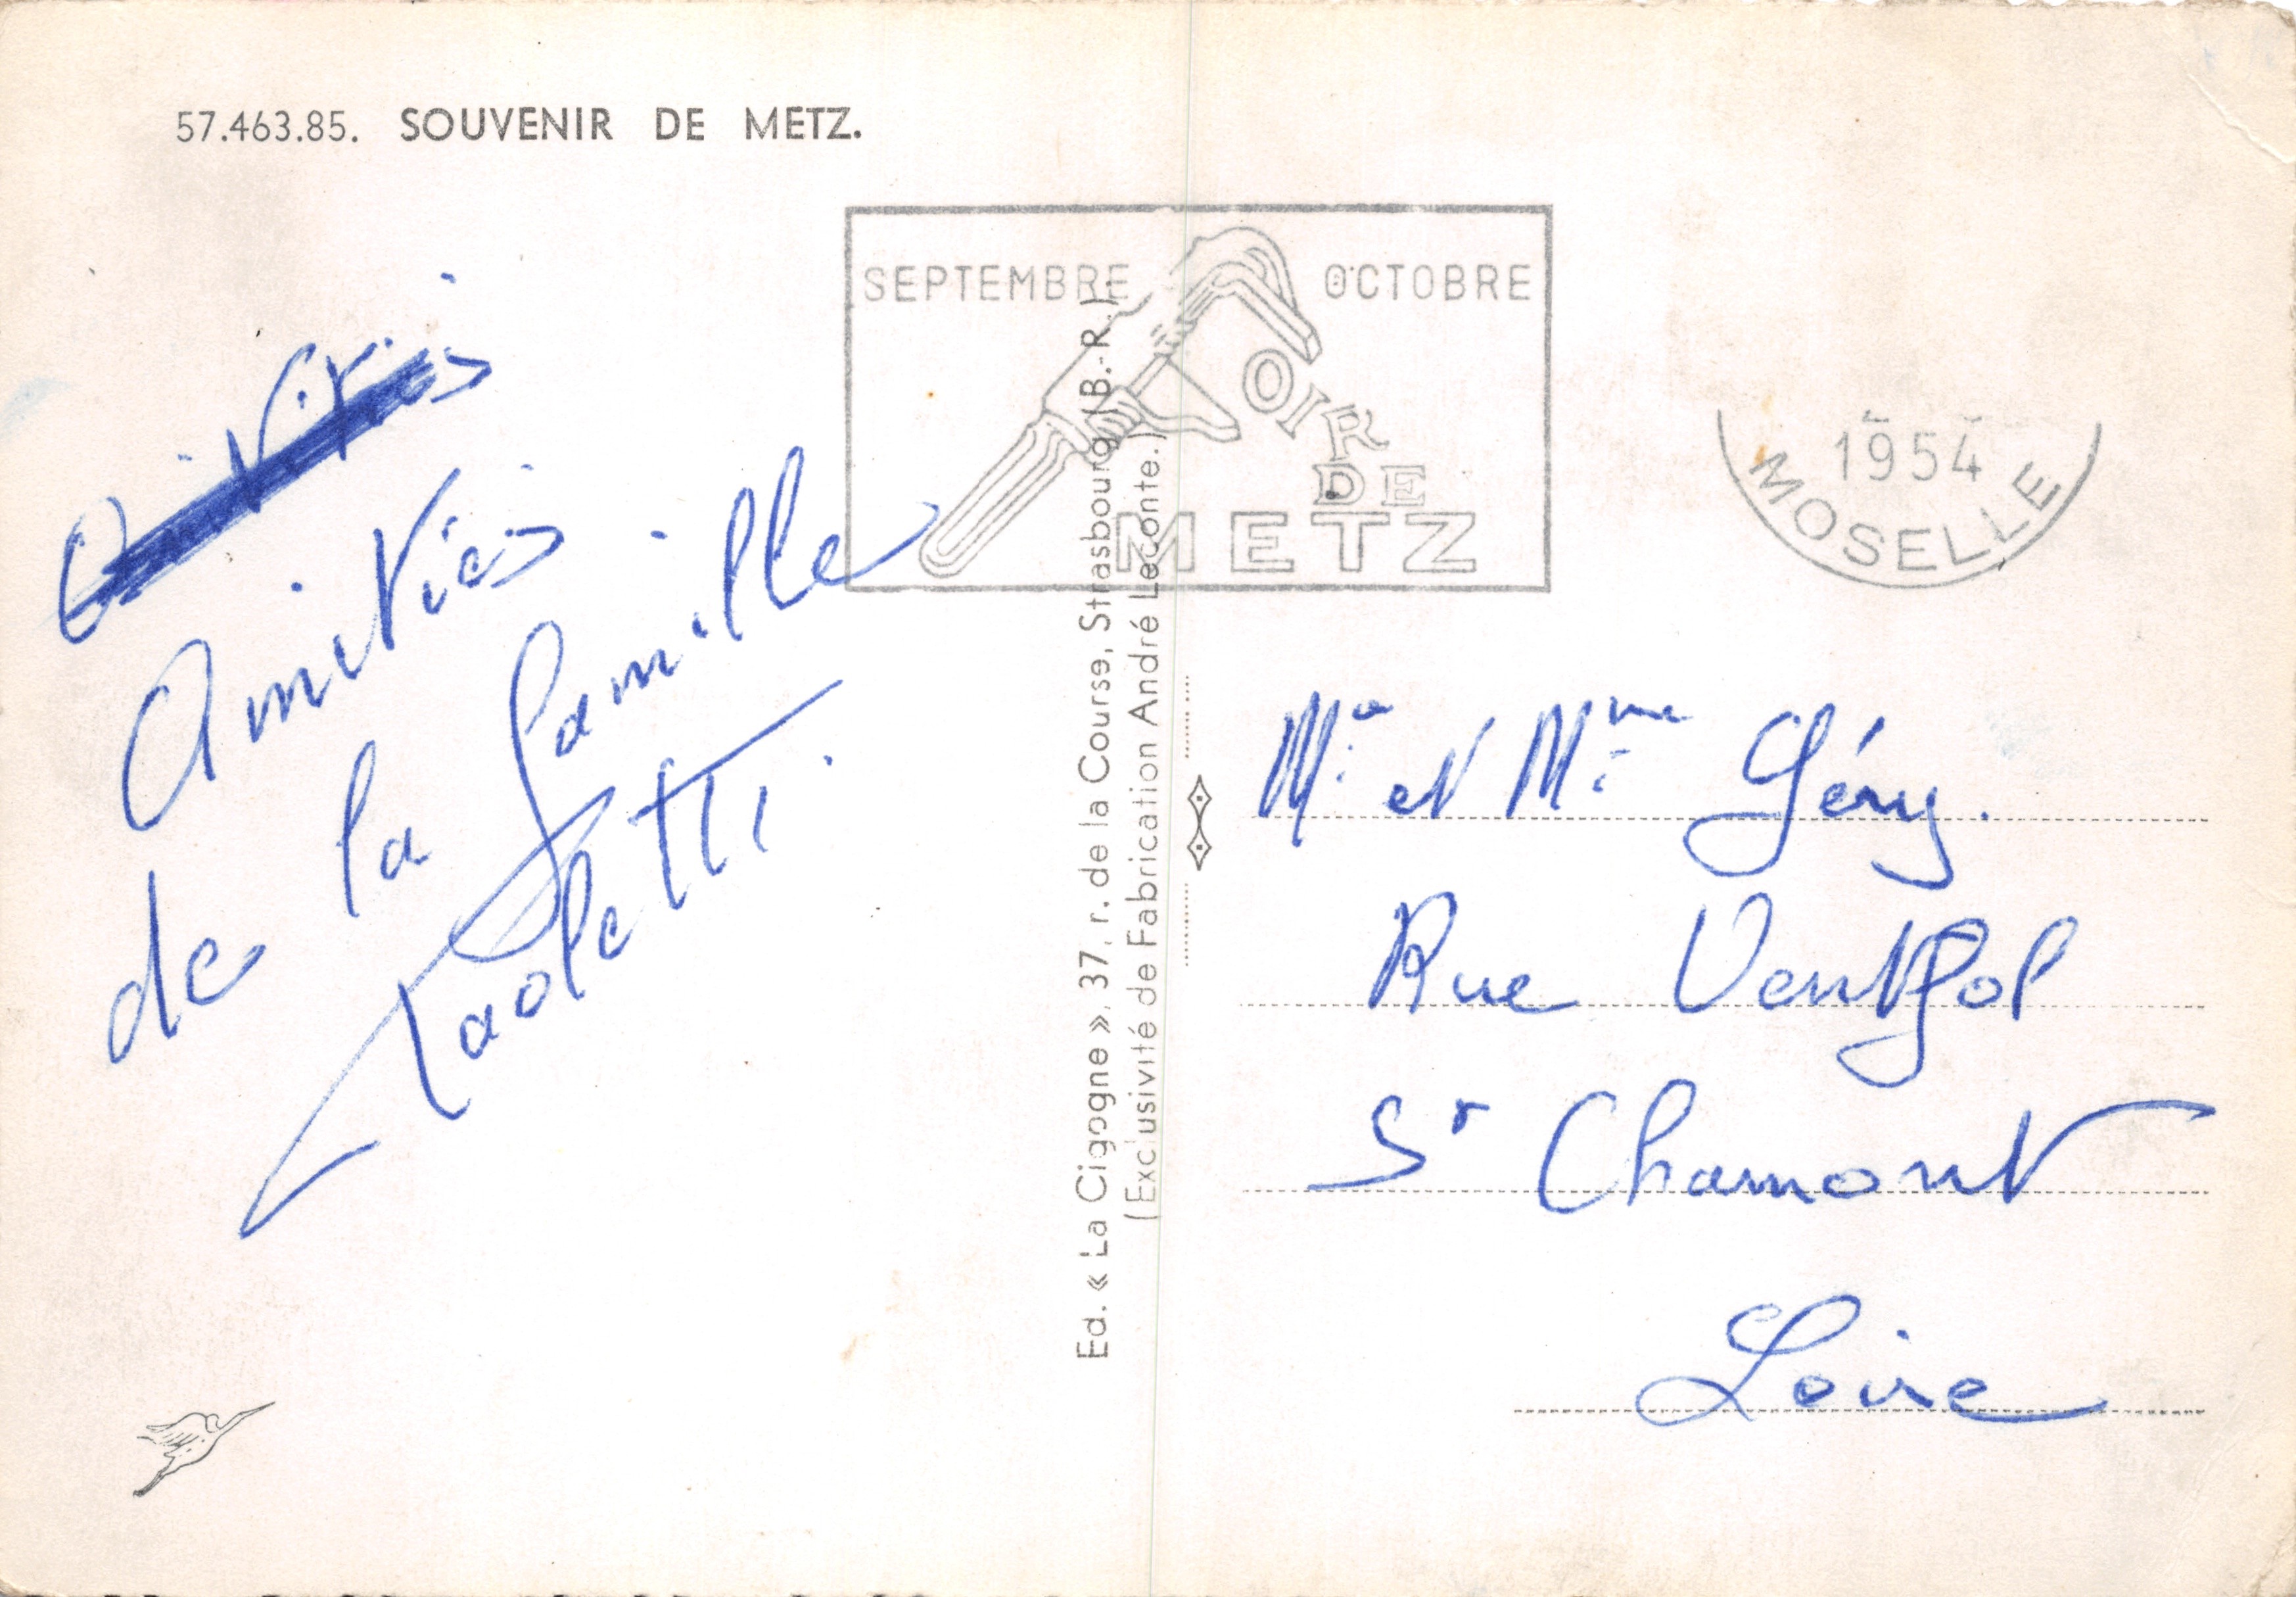 57.463.85. SOUVENIR DE METZ.
SEPTEMBRE OCTOBRE
FOIRE
DE
METZ
1954
MOSELLE
Amitiés
de la famille
Paoletti.
Ed. « La Cigogne », 37, r. de la Course, Strasbourg (B.-R.)
(Exclusivité de Fabrication André Leconte.)
Mr et Mme Géry.
Rue Ventfol
St Chamont
Loire